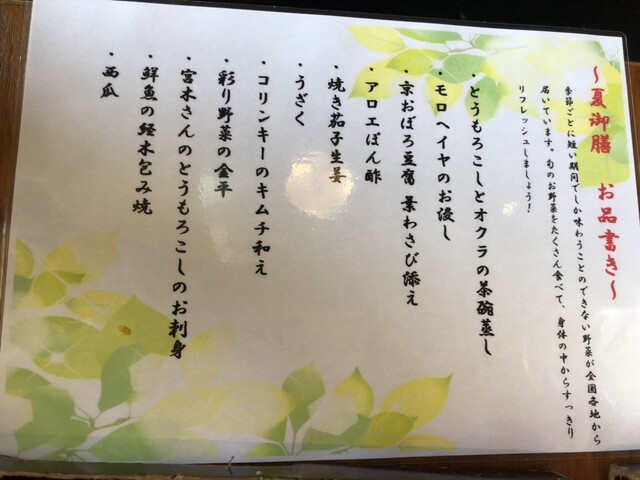 ～夏御膳 お品書き～
季節ごとに短い期間でしか味わうことのできない野菜が全国各地から
届いています。旬のお野菜をたくさん食べて、身体の中からすっきり
リフレッシュしましょう！
・とうもろこしとオクラの茶碗蒸し
・モロヘイヤのお浸し
・京おぼろ豆腐 葉わさび添え
・アロエぽん酢
・焼き茄子生姜
・うざく
・コリンキーのキムチ和え
・彩り野菜の金平
・宮本さんのとうもろこしのお刺身
・鮮魚の経木包み焼
・西瓜